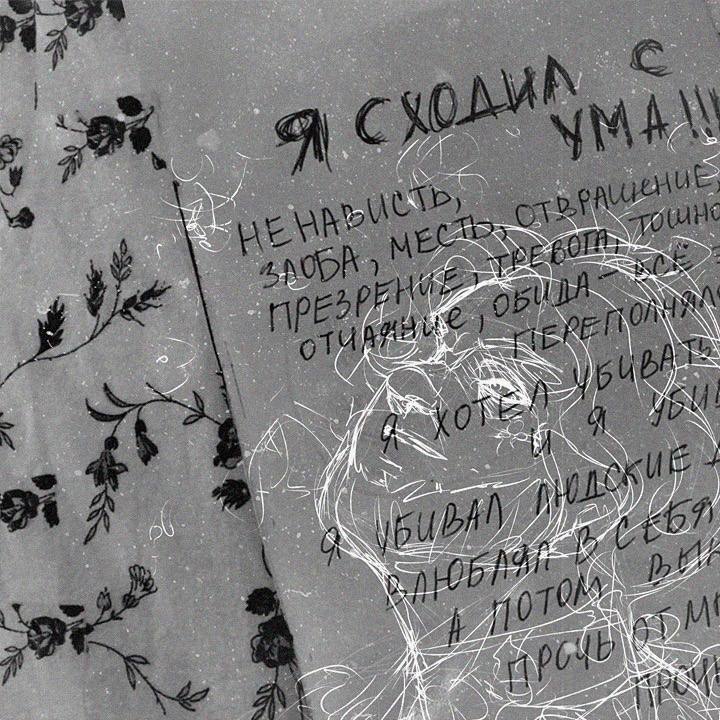 Я СХОДИЛ С
УМА!!!
НЕНАВИСТЬ,
ЗЛОБА, МЕСТЬ, ОТВРАЩЕНИЕ,
ПРЕЗРЕНИЕ, ТРЕВОГА, ТОШНО
ОТЧАЯНИЕ, ОБИДА – ВСЁ Э
ПЕРЕПОЛНЯЛО
Я ХОТЕЛ УБИВАТЬ
И Я УБИ
Я УБИВАЛ ЛЮДСКИЕ Д
ВЛЮБЛЯЛ В СЕБЯ
А ПОТОМ ВЫР
ПРОЧЬ ОТ МЕ
ПРОЧЬ